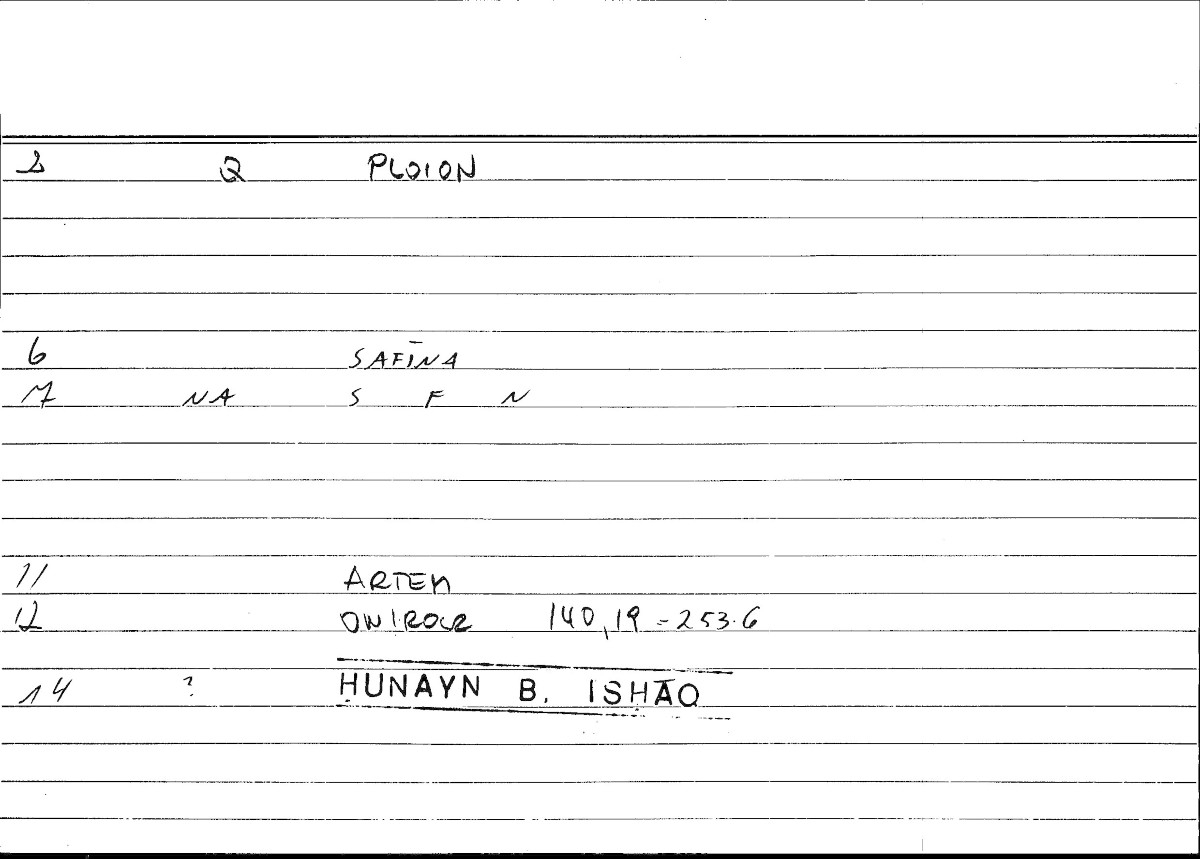 2 Q PLOION
6 SAFĪNA
7 NA S F N
11 ARTEM
12 ONIROCR 140,19 = 253.6
14 ? ḤUNAYN B. ISḤĀQ